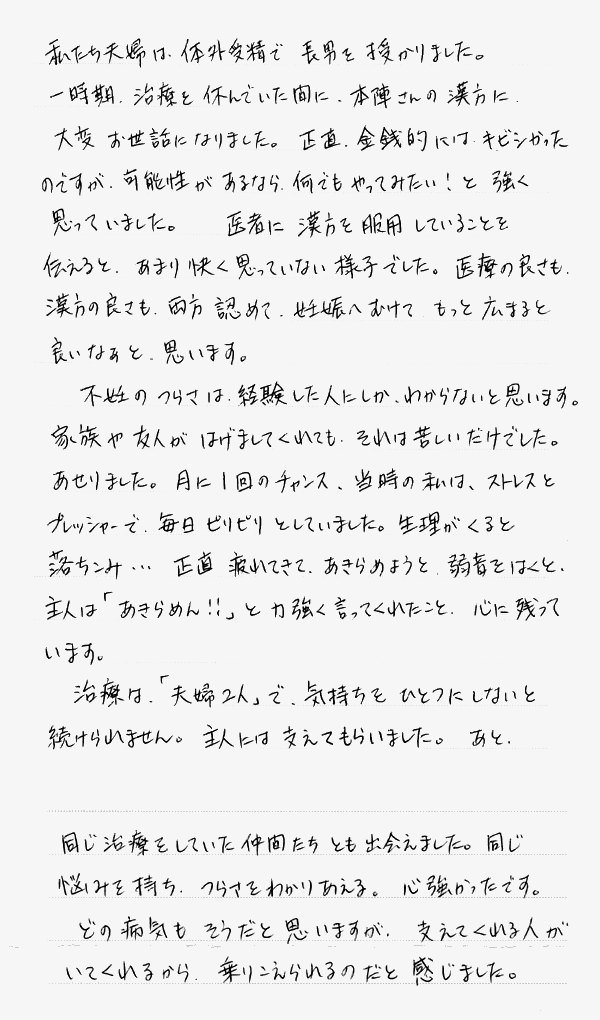 私たち夫婦は、体外受精で 長男を 授かりました。
一時期、治療を 休んでいた間に、本陣さんの漢方に、
大変 お世話になりました。 正直、金銭的には キビシかった
のですが、可能性が あるなら、何でも やってみたい！と 強く
思っていました。 医者に 漢方を 服用 していることを
伝えると、あまり快く思っていない 様子でした。医療の良さも、
漢方の良さも、両方 認めて、妊娠へ むけて、もっと 広まると
良いなぁと、思います。
不妊の つらさは、経験した人にしか、わからないと思います。
家族や 友人が はげましてくれても、それは苦しいだけでした。
あせりました。月に1回のチャンス、当時の私は、ストレスと
プレッシャーで、毎日ピリピリ としていました。生理がくると
落ちこみ… 正直 疲れてきて、あきらめようと、弱音をはくと、
主人は「あきらめん!!」と力強く言ってくれたこと、心に残って
います。
治療は、「夫婦2人」で、気持ちを ひとつにしないと
続けられません。主人には 支えてもらいました。 あと、
同じ治療をしていた 仲間たち とも出会えました。同じ
悩みを持ち、つらさをわかりあえる。 心強かったです。
どの病気も そうだと思いますが、支えてくれる人が
いてくれるから、乗りこえられるのだと 感じました。